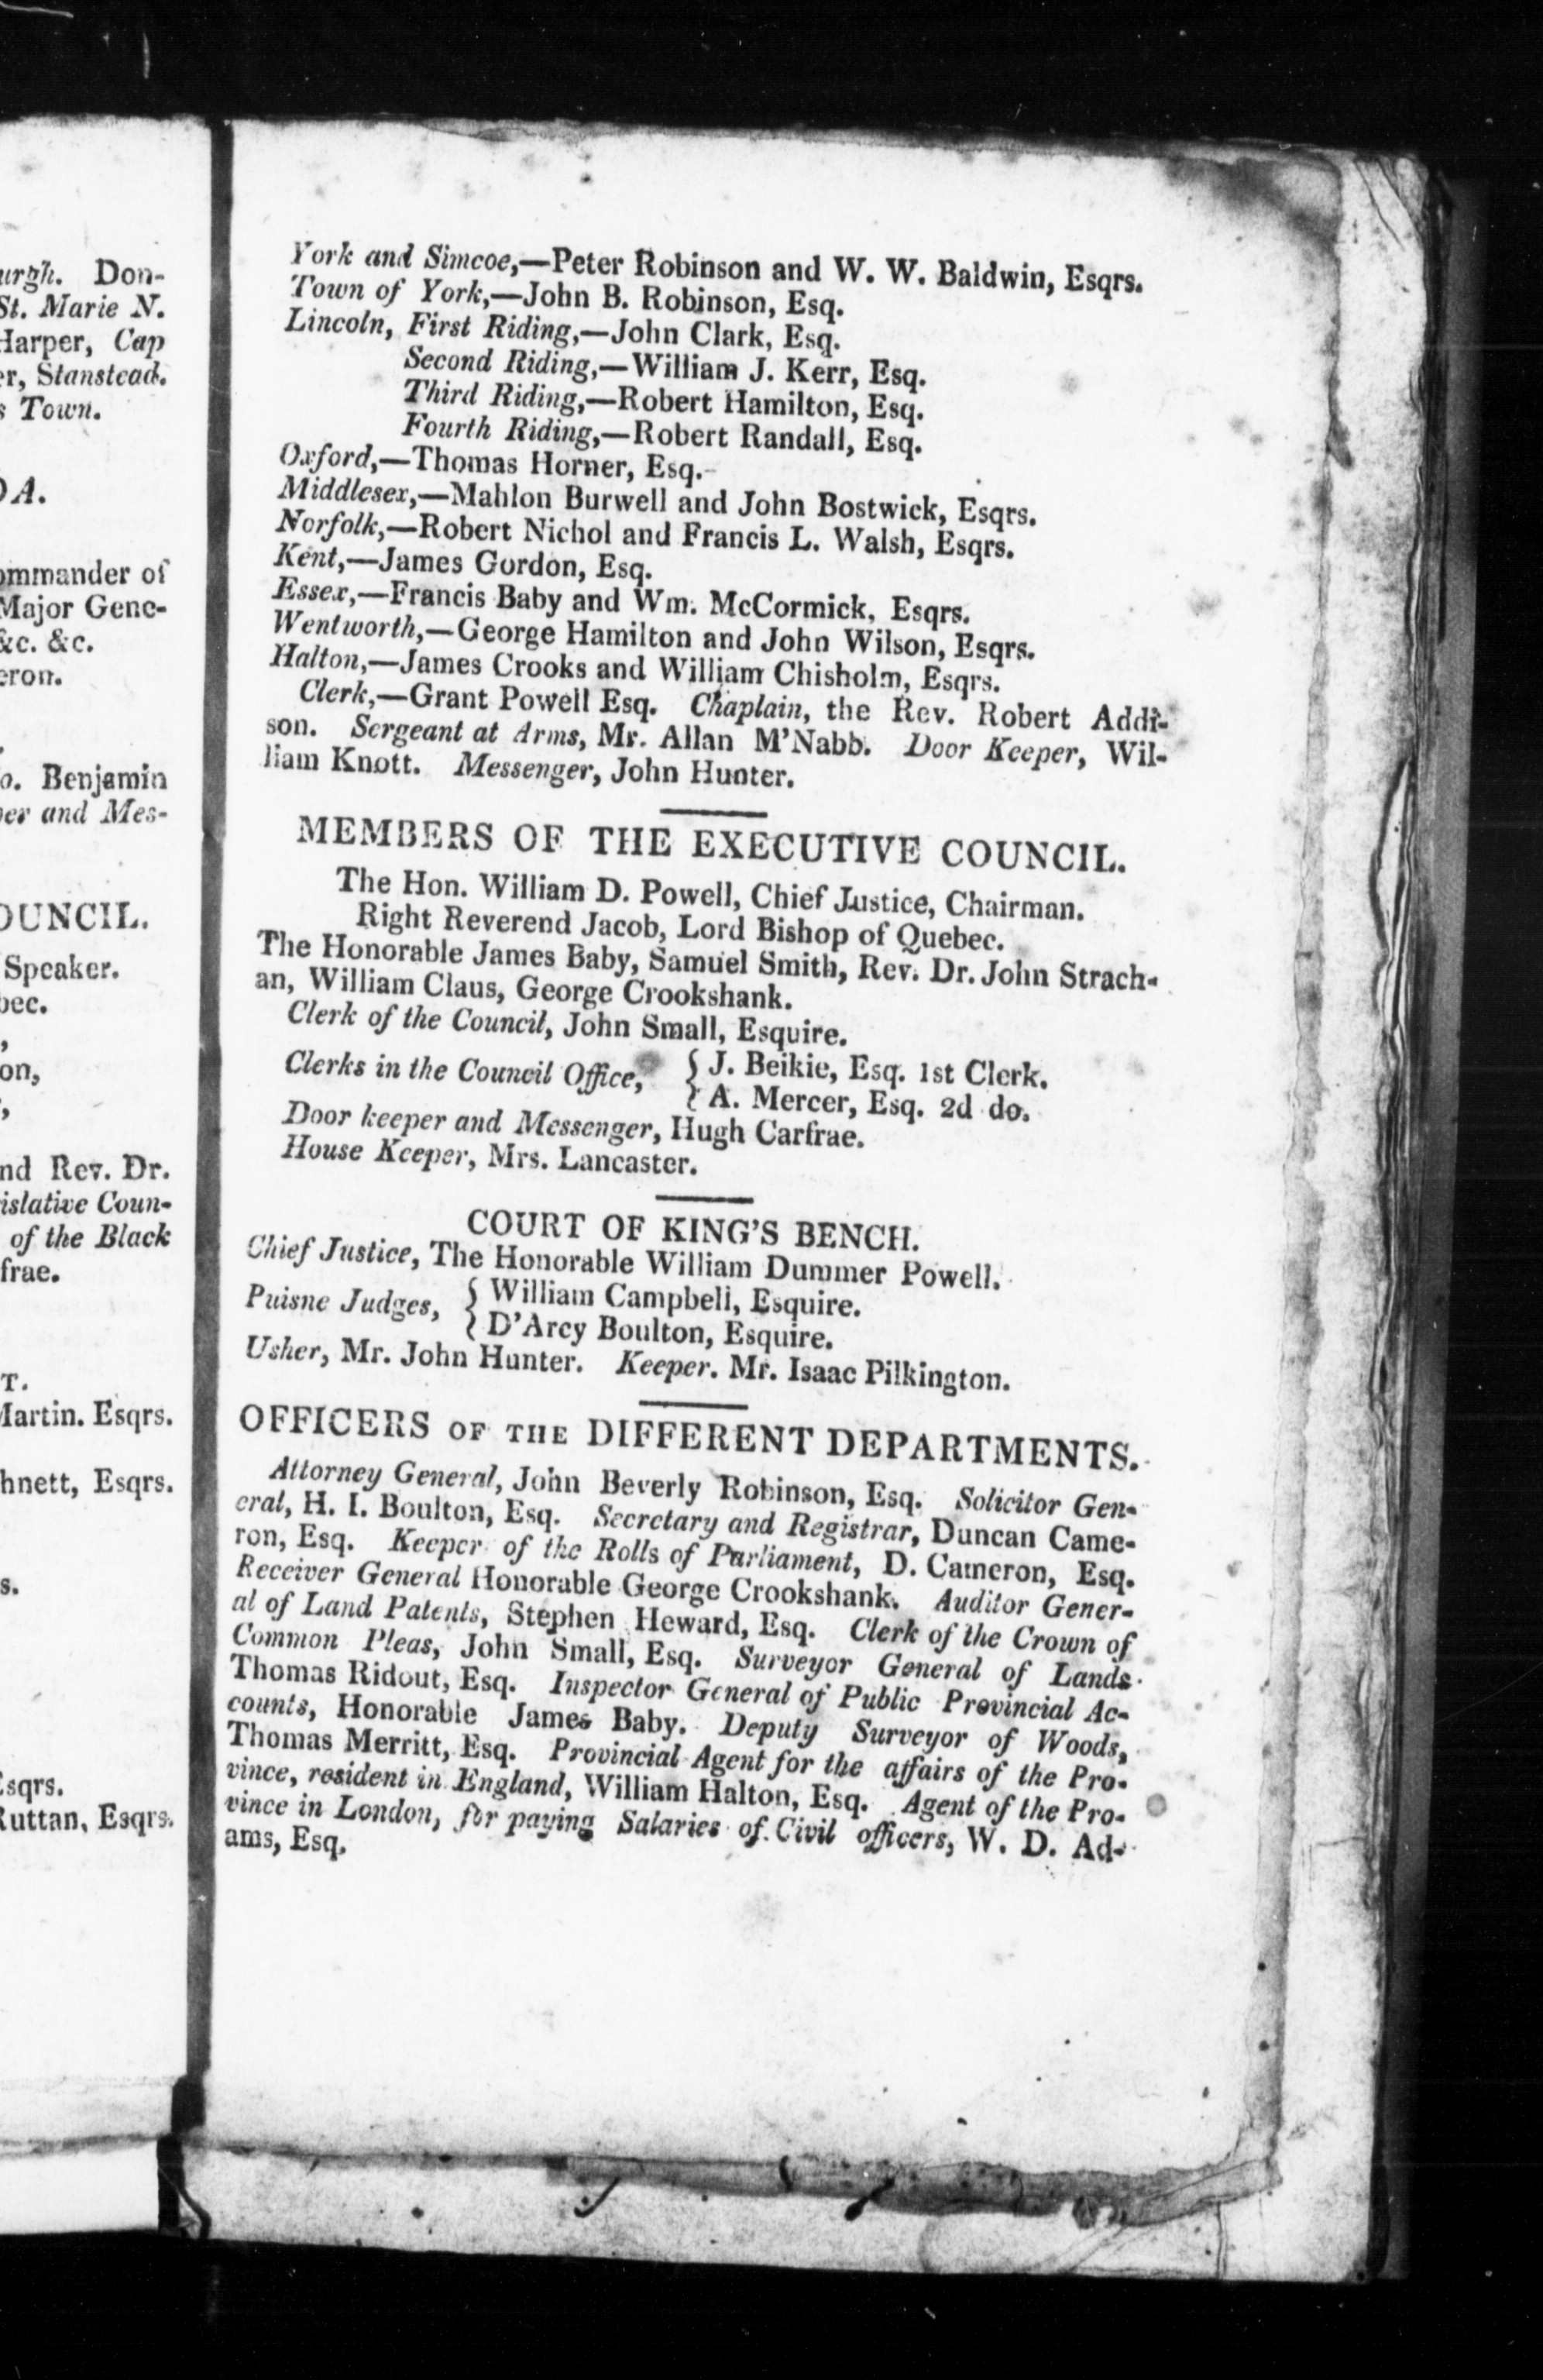 urgh. Don-
St. Marie N.
Harper, Cap
er, Stanstead.
s Town.
DA.
ommander of
Major Gene-
&c. &c.
eron.
o. Benjamin
per and Mes-
OUNCIL.
Speaker.
bec.
on,
nd Rev. Dr.
islative Coun-
of the Black
frae.
T.
Martin. Esqrs.
hnett, Esqrs.
s.
Esqrs.
Ruttan, Esqrs.
York and Simcoe,—Peter Robinson and W. W. Baldwin, Esqrs.
Town of York,—John B. Robinson, Esq.
Lincoln, First Riding,—John Clark, Esq.
Second Riding,—William J. Kerr, Esq.
Third Riding,—Robert Hamilton, Esq.
Fourth Riding,—Robert Randall, Esq.
Oxford,—Thomas Horner, Esq.
Middlesex,—Mahlon Burwell and John Bostwick, Esqrs.
Norfolk,—Robert Nichol and Francis L. Walsh, Esqrs.
Kent,—James Gordon, Esq.
Essex,—Francis Baby and Wm. McCormick, Esqrs.
Wentworth,—George Hamilton and John Wilson, Esqrs.
Halton,—James Crooks and William Chisholm, Esqrs.
Clerk,—Grant Powell Esq. Chaplain, the Rev. Robert Addi-
son. Sergeant at Arms, Mr. Allan M'Nabb. Door Keeper, Wil-
liam Knott. Messenger, John Hunter.
MEMBERS OF THE EXECUTIVE COUNCIL.
The Hon. William D. Powell, Chief Justice, Chairman.
Right Reverend Jacob, Lord Bishop of Quebec.
The Honorable James Baby, Samuel Smith, Rev. Dr. John Strach-
an, William Claus, George Crookshank.
Clerk of the Council, John Small, Esquire.
Clerks in the Council Office, { J. Beikie, Esq. 1st Clerk.
{ A. Mercer, Esq. 2d do.
Door keeper and Messenger, Hugh Carfrae.
House Keeper, Mrs. Lancaster.
COURT OF KING'S BENCH.
Chief Justice, The Honorable William Dummer Powell.
Puisne Judges, { William Campbell, Esquire.
{ D'Arcy Boulton, Esquire.
Usher, Mr. John Hunter. Keeper. Mr. Isaac Pilkington.
OFFICERS OF THE DIFFERENT DEPARTMENTS.
Attorney General, John Beverly Robinson, Esq. Solicitor Gen-
eral, H. I. Boulton, Esq. Secretary and Registrar, Duncan Came-
ron, Esq. Keeper of the Rolls of Parliament, D. Cameron, Esq.
Receiver General Honorable George Crookshank. Auditor Gener-
al of Land Patents, Stephen Heward, Esq. Clerk of the Crown of
Common Pleas, John Small, Esq. Surveyor General of Lands
Thomas Ridout, Esq. Inspector General of Public Provincial Ac-
counts, Honorable James Baby. Deputy Surveyor of Woods,
Thomas Merritt, Esq. Provincial Agent for the affairs of the Pro-
vince, resident in England, William Halton, Esq. Agent of the Pro-
vince in London, for paying Salaries of Civil officers, W. D. Ad-
ams, Esq.